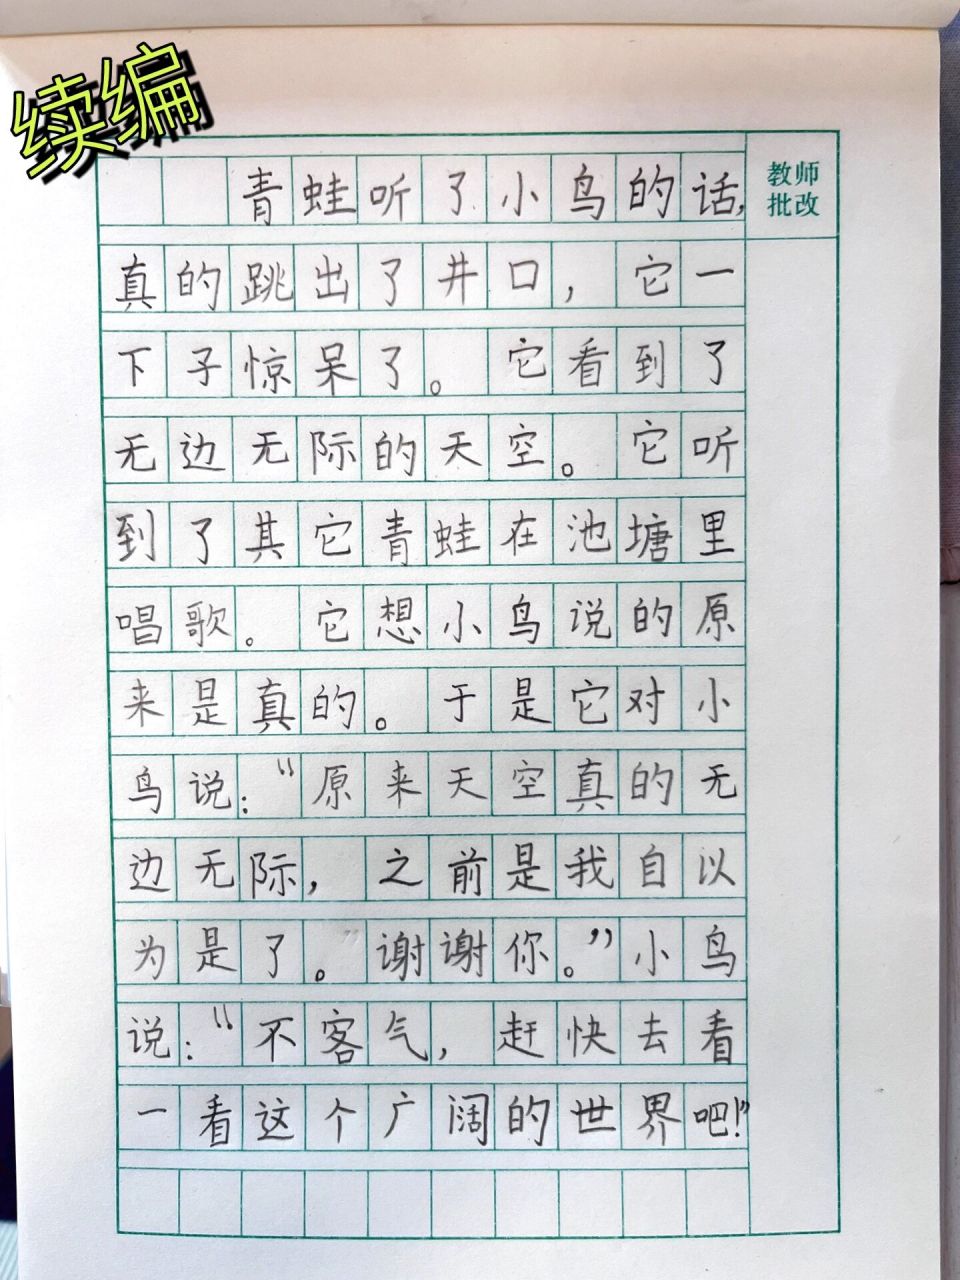 续编
教师
批改
青蛙听了小鸟的话,
真的跳出了井口，它一
下子惊呆了。它看到了
无边无际的天空。它听
到了其它青蛙在池塘里
唱歌。它想小鸟说的原
来是真的。于是它对小
鸟说：“原来天空真的无
边无际，之前是我自以
为是了。谢谢你。”小鸟
说：“不客气，赶快去看
一看这个广阔的世界吧!”